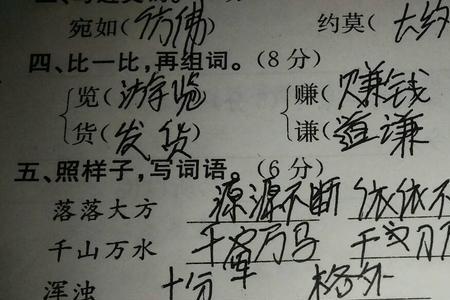 宛如(仿佛) 约莫(大约
四、比一比,再组词。(8分)
览(游览) 赚(赚钱
货(发货) 谦(道谦
五、照样子,写词语。(6分)
落落大方 源源不断 依依不
千山万水 千军万马 千
浑浊 十分 格外